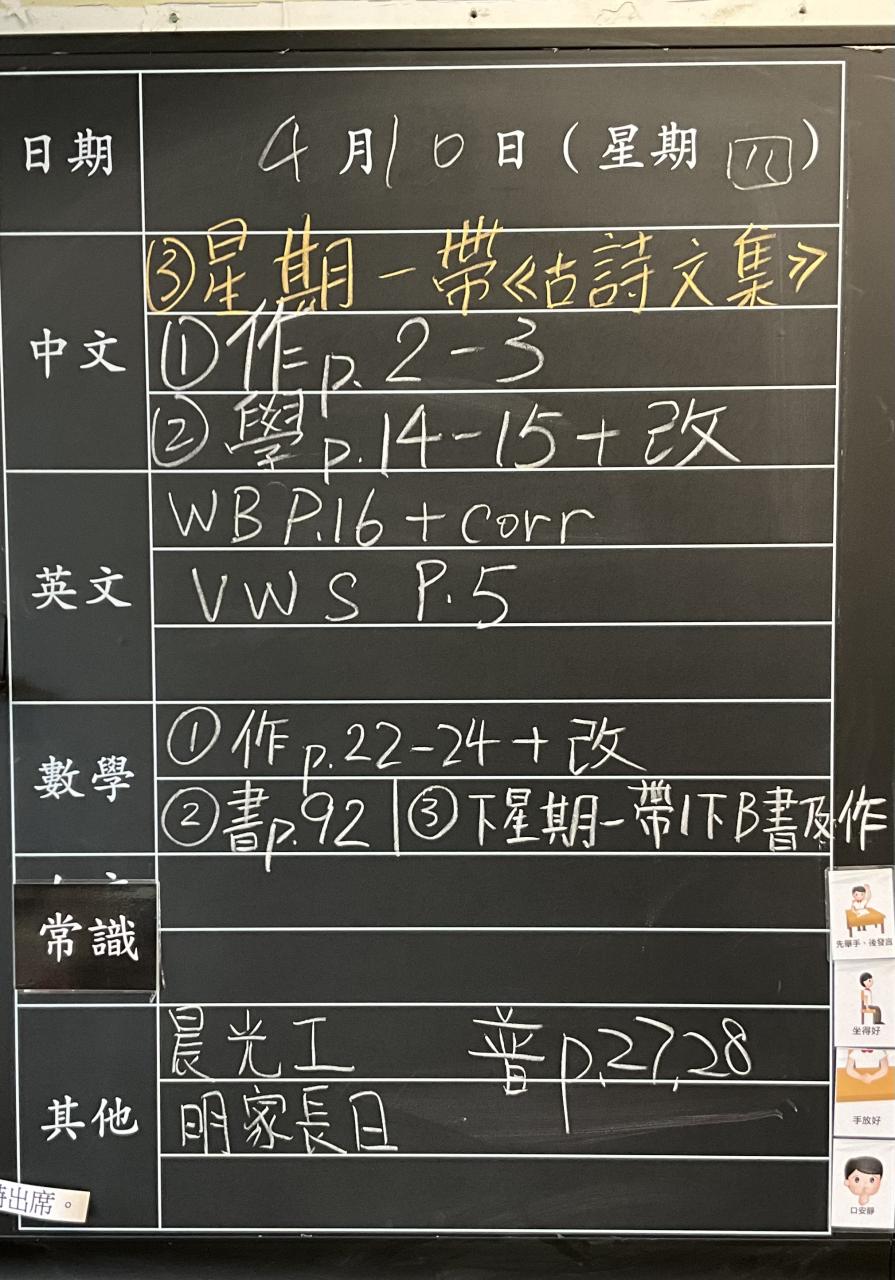 日期 4月10日（星期四）
中文
③星期一帶《古詩文集》
①作p.2-3
②學p.14-15+改
英文
WB P.16+corr
VWS P.5
數學
①作p.22-24+改
②書p.92 | ③下星期一帶1下B書及作
常識
其他
晨光工 普p.27,28
明家長日
時出席。
先舉手、後發言
坐得好
手放好
口安靜